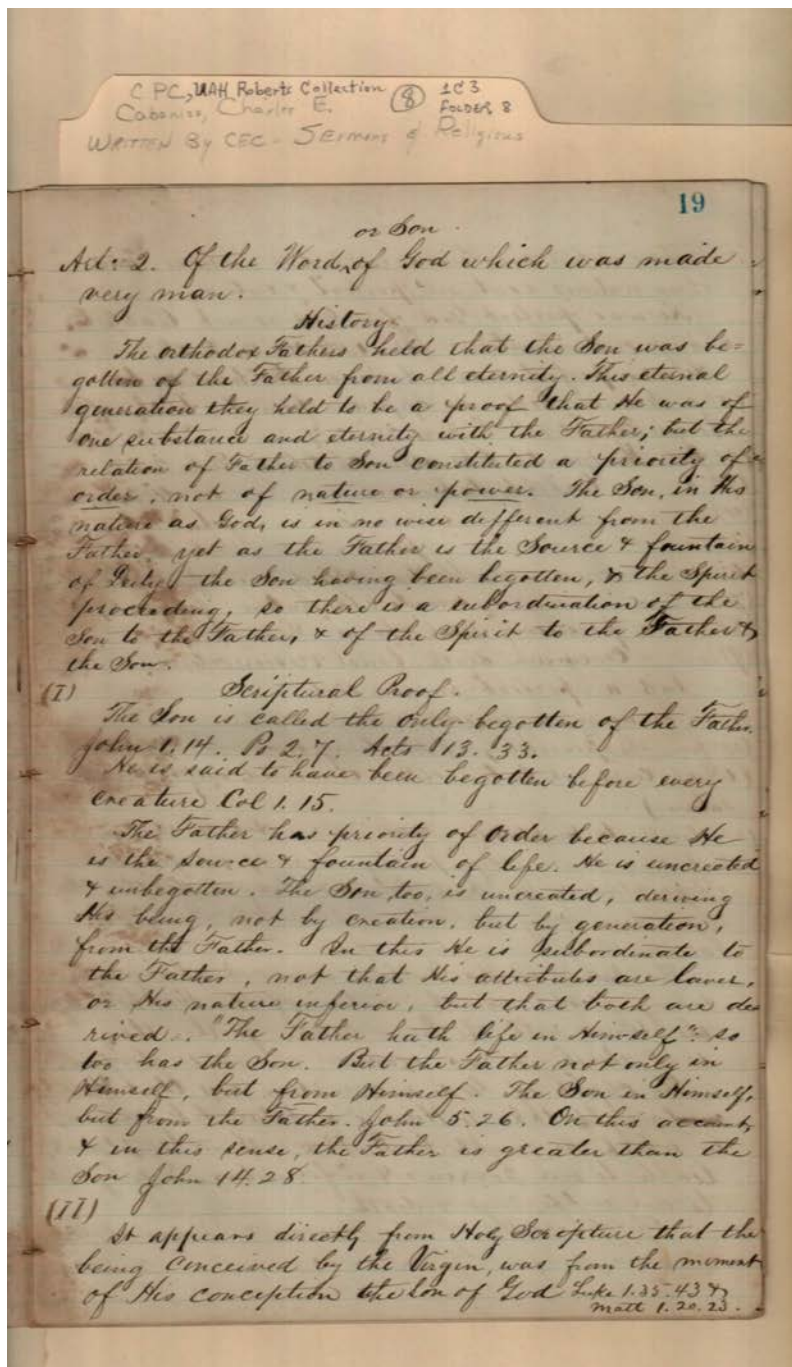 C PC, UAH Roberts Collection (8) 1C3
Cabaniss, Charles E. FOLDER 8
WRITTEN By CEC - SERMONS & Religious
19
or Son
Art: 2. Of the Word^of God which was made
very man.
History.
The orthodox Fathers held that the Son was be=
gotten of the Father from all eternity. This eternal
generation they held to be a proof that He was of
one substance and eternity with the Father; but the
relation of Father to Son constituted a priority of
order, not of nature or power. The Son, in His
nature as God, is in no wise different from the
Father, yet as the Father is the Source & fountain
of Deity, the Son having been begotten, & the Spirit
proceeding, so there is a subordination of the
Son to the Father, & of the Spirit to the Father &
the Son.
(I) Scriptural Proof.
The Son is called the only-begotten of the Father.
John 1.14. Ps 2.7. Acts 13.33.
He is said to have been begotten before every
creature Col 1.15.
The Father has priority of Order because He
is the source & fountain of life. He is uncreated
& unbegotten. The Son, too, is uncreated, deriving
His being, not by creation, but by generation,
from the Father. In this He is subordinate to
the Father, not that His attributes are lower,
or His nature inferior, but that both are de
rived. "The Father hath life in Himself": so
too has the Son. But the Father not only in
Himself, but from Himself. The Son in Himself,
but from the Father. John 5.26. On this account,
& in this sense, the Father is greater than the
Son John 14.28
(II)
It appears directly from Holy Scripture that the
being conceived by the Virgin, was from the moment
of His conception the Son of God Luke 1.35.43 &
Matt 1.20.23.